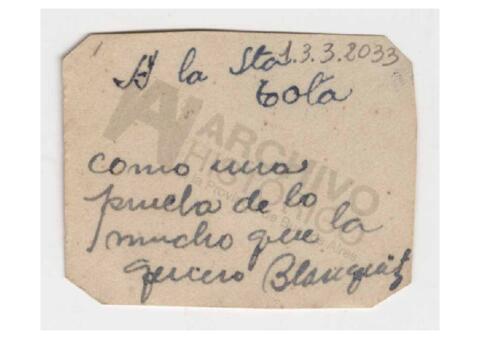 1
1.3.3.2033
A la Sta
Lola
como una
prueba de lo
mucho que la
quiero Blanquita
ARCHIVO
HISTÓRICO
de la Provincia de Buenos Aires